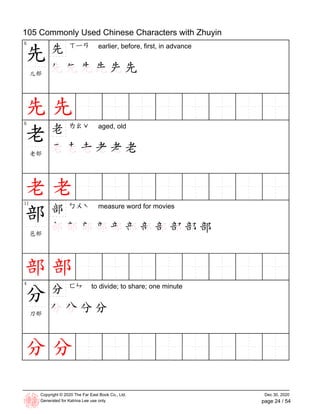 105 Commonly Used Chinese Characters with Zhuyin
6
先 先 ㄒㄧㄢ earlier, before, first, in advance
儿部
先
先 先
6
老 老 ㄌㄠˇ aged, old
老部
老
老 老
11
部 部 ㄅㄨˋ measure word for movies
邑部
部
部 部
4
分 分 ㄈㄣ to divide; to share; one minute
刀部
分
分 分
Copyright © 2020 The Far East Book Co., Ltd. Dec 30, 2020
Generated for Katrina Lee use only. page 24 / 54